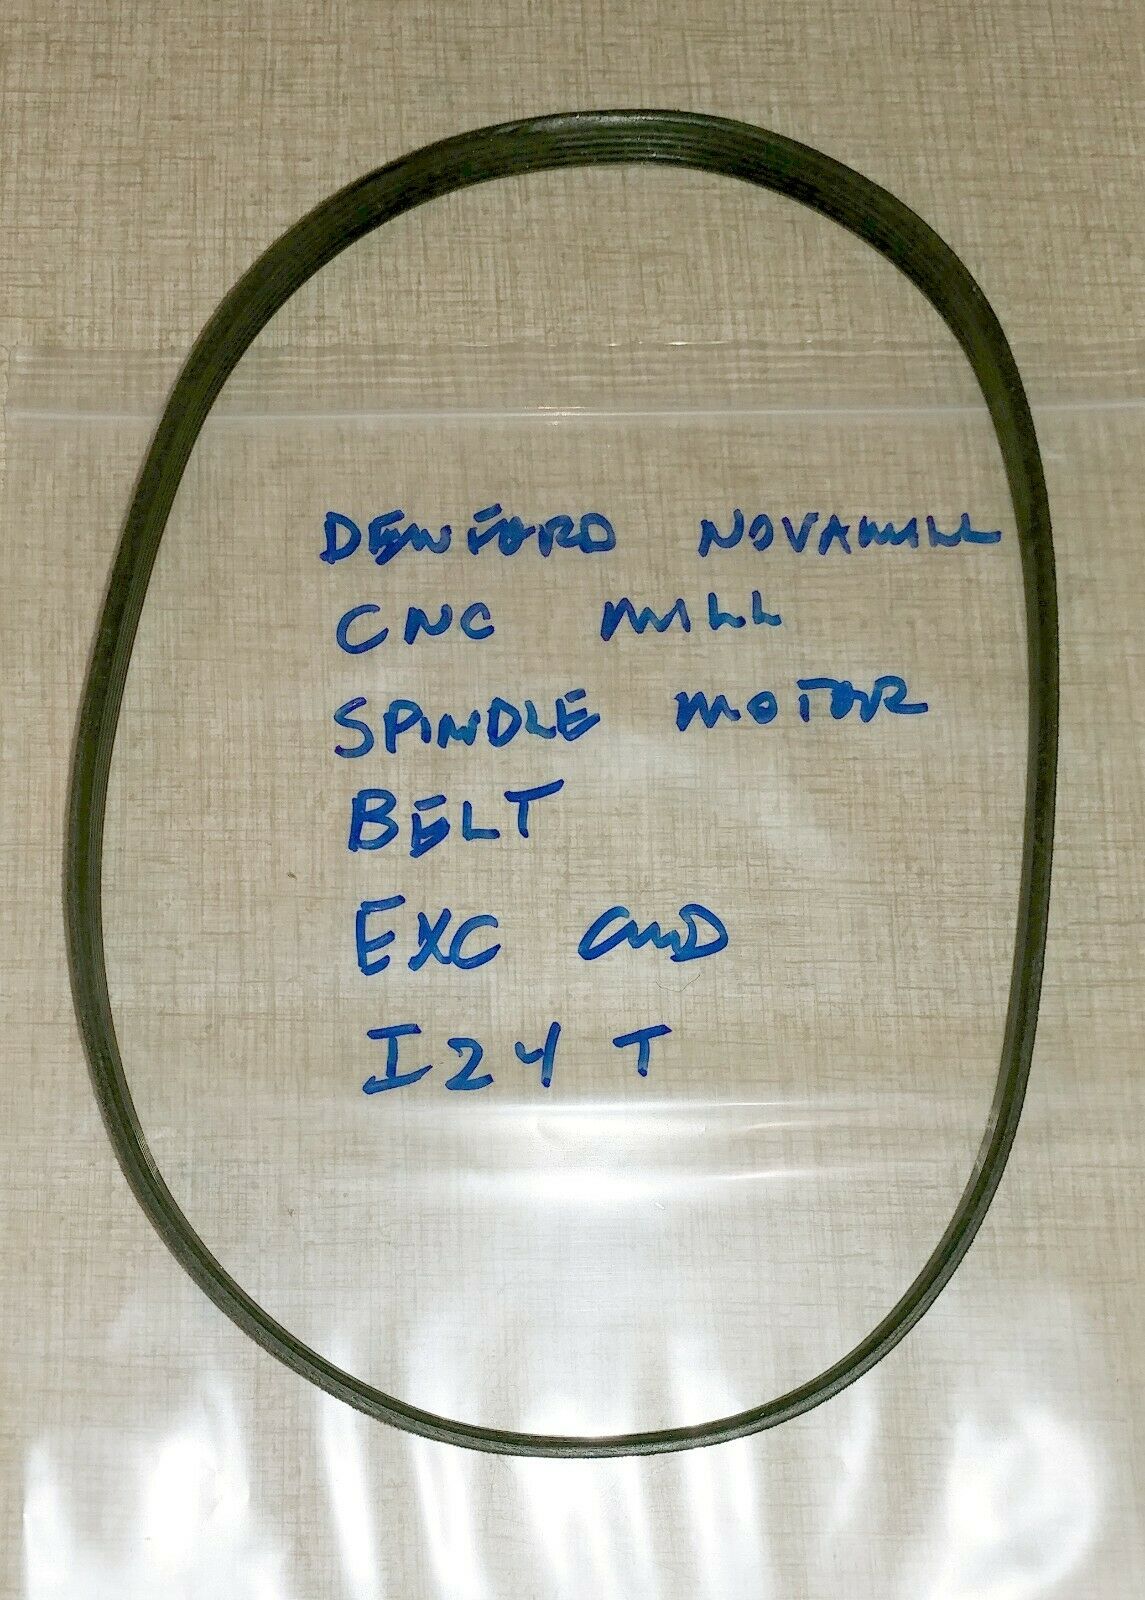 DENFORD NOVAMILL
CNC MILL
SPINDLE MOTOR
BELT
EXC CND
I24 T